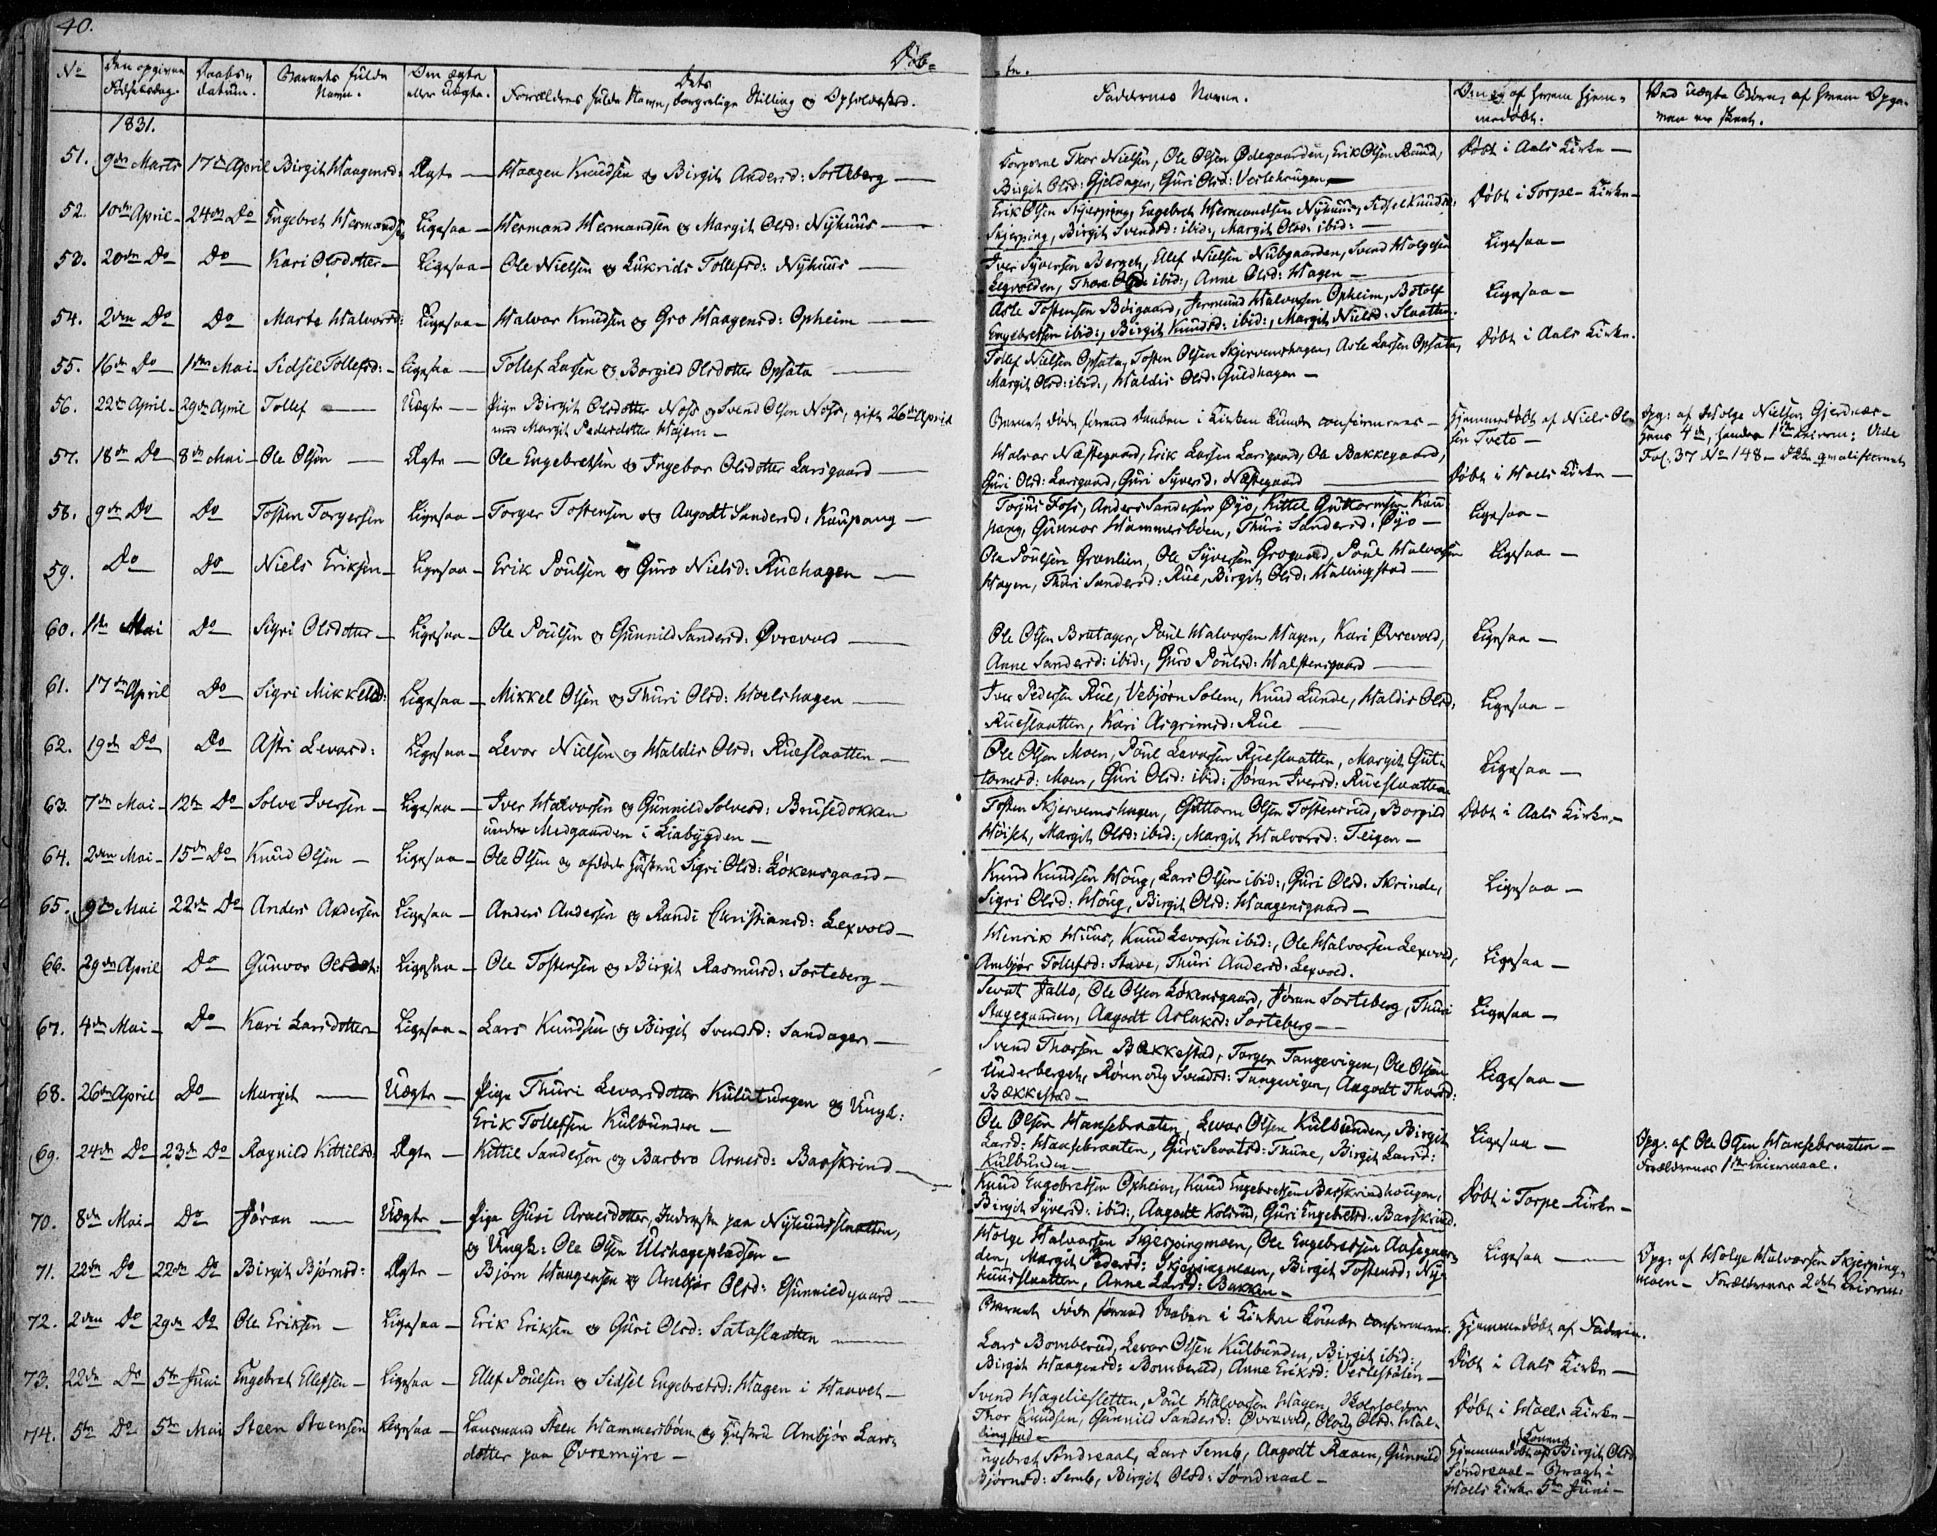 40.
Døb=
te.
No
Den opgivne Fødselsdag.
Daabs-datum.
Barnets fulde Navn.
Om ægte eller uægte.
Dets Forældres fulde Navn, borgerlige Stilling og Opholdssted.
Faddernes Navne.
Om og af hvem hjemmedøbt.
Ved uægte Børn, af hvem Opga-
ven er skeet.
1831.
51. 9de Marts 17de April Birgit Haagensd: Ægte — Haagen Knudsen og Birgit Andersd: Sorteberg —
Corporal Thor Nielsen, Ole Olsen Ødegaarden, Erik Olsen Ruud,
Birgit Olsd: Gjeldagen, Guri Olsd: Veslehougen —
Døbt i Aals Kirke —
52. 10de April — 24de Do Engebret Hermandsen Ligesaa — Hermand Hermandsen og Margit Olsd: Nyhuus —
Erik Olsen Skjerping, Engebret Hermandsen Nyhuus, Sidsel Knudsd:
Skjerping, Birgit Svendsd: ibid:, Margit Olsd: ibid: —
Døbt i Torpe-Kirke —
53. 20de Do Do Kari Olsdotter — Ligesaa — Ole Nielsen og Lukrids Tollefsd: Nyhuus —
Iver Syversen Berget, Ellef Nielsen Nubgaarden, Svend Holgesen
Thora ibid:, Anne Olsd: Hagen —
Ligesaa —
54. 2den Do Do Marte Halvorsd: Ligesaa — Halvor Knudsen og Gro Haagensd: Opheim —
Asle Tostensen Bøigaard, Halvorsen Opheim, Botolf
Engebretsen ibid:, Birgit Knudsd: ibid:, Margit Nielsd: Slaatten.
Ligesaa —
55. 16de Do 1ste Mai Sidsel Tollefsd: — Ligesaa — Tollef Larsen og Borgild Olsdotter Opsata —
Tollef Nielsen Opsata, Tosten Olsen Skjervemshagen, Asle Larsen Opsata,
Margit Olsd: ibid:, Haldis Olsd: Guldhagen —
Døbt i Aals Kirke.
56. 22de April — 29de April Tollef — Uægte — Pige Birgit Olsdotter Noss og Svend Olsen Noss, gift 26de April
med Margit Pedersdotter Hajem —
Barnet døde førend Daaben i Kirken kunde confirmeres —
Hjemmedøbt af Niels Ol-
sen Tveto —
Opg: af Holge Nielsen Gjerdnær-
hans 4de, hendes 1ste Leierm: Vide
Fol. 37 No 148 —
57. 18de Do 8de Mai — Ole Olsen — Ægte — Ole Engebretsen og Ingebor Olsdotter Larsgaard —
Halvor Næstegaard, Erik Larsen Larsgaard, Ole Bakkegaard,
Guri Olsd: Larsgaard, Guri Syversd: Næstegaard —
Døbt i Hoels Kirke —
58. 9de Do Do Tosten Torgersen Ligesaa — Torger Tostensen og Aagodt Sandersd: Kaupang —
Foss, Anders Sandersen Øyo, Kittel Guttormsen Kau-
pang, Gunnar Hammersbøen, Thuri Sandersd: Øyo —
Ligesaa —
59. Do Do Niels Eriksen — Ligesaa — Erik Poulsen og Guro Nielsd: Ruehagen —
Ole Poulsen Grønlien, Ole Syversen Grogaard, Poul Halvorsen
Hagen, Thuri Sandersd: Rue, Birgit Olsd: Hallingstad —
Ligesaa —
60. 1ste Mai Do Sigri Olsdotter — Ligesaa — Ole Poulsen og Gunnild Sandersd: Øvrevold —
Ole Olsen Brataager, Poul Halvorsen Hagen, Kari Øvrevold,
Anne Sandersd: ibid:, Guro Poulsd: Halstensgaard —
Ligesaa —
61. 17de April Do Sigri Mikkelsd: Ligesaa — Mikkel Olsen og Thuri Olsd: Hoelshagen —
Iver Pedersen Rue, Vebjørn Solem, Knud Lunde, Haldis Olsd:
Rueslaatten, Kari Asgrimsd: Rue —
Ligesaa —
62. 19de Do Do Astri Levorsd: Ligesaa — Levor Nielsen og Haldis Olsd: Rueslaatten —
Ole Olsen Moen, Poul Levorsen Rueslaatten, Margit Gut-
tormsd: Moen, Guri Olsd: ibid: Jøran Iversd: Rueslaatten
Ligesaa —
63. 7de Mai — 12te Do Solve Iversen — Ligesaa — Iver Halvorsen og Gunnild Solvesd: Brusedokken
under Medgaarden i Liabygden —
Tosten Skjervemshagen, Guttorm Olsen Tostensrud, Borgild
Hoiset, Margit Olsd: ibid:, Margit Halvorsd: Teigen —
Døbt i Aals Kirke. —
64. 2den Mai — 15de Do Knud Olsen — Ligesaa — Ole Olsen og afdøde Hustru Sigri Olsd: Løkensgaard —
Knud Knudsen Houg, Lars Olsen ibid:, Guri Olsd: Skrinde,
Sigri Olsd: Houg, Birgit Olsd: Haagensgaard —
Ligesaa —
65. 9de Mai 22de Do Anders Andersen Ligesaa — Anders Andersen og Randi Christiansd: Lexvold —
Henrik Huus, Knud Levorsen ibid:, Ole Halvorsen Lexvold,
Ambjør Tollefsd: Stave, Thuri Andersd: Lexvold.
Ligesaa —
66. 29de April Do Gunvor Olsdot: Ligesaa — Ole Tostensen og Birgit Rasmusd: Sorteberg —
Sevat Jallo, Ole Olsen Løkensgaard, Jøran Sorteberg, Thuri
Stagegaarden, Aagodt Aslaksd: Sorteberg —
Ligesaa —
67. 4de Mai — Do Kari Larsdotter Ligesaa — Lars Knudsen og Birgit Svendsd: Sandager —
Svend Thorsen Bækkestad, Torger Tangevigen, Ole Olsen
Underberget, Rønnoug Svendsd: Tangevigen, Aagodt Thorsd:
Bækkestad —
Ligesaa —
68. 26de April Do Margit — Uægte — Pige Thuri Levorsdotter Kulutugen og Ungk:
Erik Tollefsen Kulbunden —
Ole Olsen Hansebraaten, Levor Olsen Kulbunden, Birgit
Larsd: Hansebraaten, Guri Sevatsd: Thune, Birgit Larsd:
Kulbunden —
Ligesaa —
Opg: af Ole Olsen Hansebraaten —
Forældrenes 1ste Leiermaal.
69. 24de Do 23de Do Ragnild Kittilsd: Ægte — Kittil Sandersen og Barbro Arnesd: Barskrind —
Knud Engebretsen Opheim, Knud Engebretsen Barskrindhougen,
Birgit Syversd: ibid:, Aagodt Kolsrud, Guri Engebretsd: Barskrind.
Døbt i Torpe-Kirke —
70. 8de Mai — Do Jøran — Uægte — Pige Guri Arnesdotter, Inderste paa Nyhuusslaatten,
og Ungk: Ole Olsen Ulshagepladsen —
Holge Halvorsen Skjerpingmoen, Ole Engebretsen Aasegaar-
den, Margit Pedersd: Skjerpingmoen, Birgit Tostensd: Ny-
huusslaatten, Anne Larsd: Bakken —
Ligesaa —
Opg: af Holge Halvorsen Skjerping-
moen — Forældrenes 2det Leierm:
71. 22de Do 22de Do Birgit Bjørnsd: Ægte — Bjørn Haagensen og Ambjør Olsd: Gunnildgaard —
72. 2den Do 29de Do Ole Eriksen — Ligesaa — Erik Eriksen og Guri Olsd: Sataslaatten —
Barnet døde førend Daaben i Kirken kunde confirmeres.
Hjemmedøbt af Faderen.
73. 22de Do 5te Juni Engebret Ellefsen — Ligesaa — Ellef Poulsen og Sidsel Engebretsd: Hagen i Hauvet —
Lars Bomberud, Levor Olsen Kulbunden, Birgit ibid:,
Birgit Haagensd: Bomberud, Anne Eriksd: Veslestølen —
Døbt i Aals Kirke —
74. 5te Do 5te Mai Steen Steensen Ligesaa — Lensmand Steen Hammersbøen og Hustru Ambjør Lars-
dotter paa Øvremyre —
Svend Hageliesletten, Poul Halvorsen Hagen, Skoleholder
Thor Knudsen, Gunnild Sandersd: Øvrevold, Oloug Olsd: Hal-
lingstad —
Døbt i Hoels Kirke —
Engebret Søndreaal, Lars Semb, Aagodt Raaen, Gunnild
Bjørnsd: Semb, Birgit Olsd: Søndreaal —
Hjemmedøbt af Birgit Olsd:
Søndreaal — Bragt i
Hoels Kirke 5te Juni —